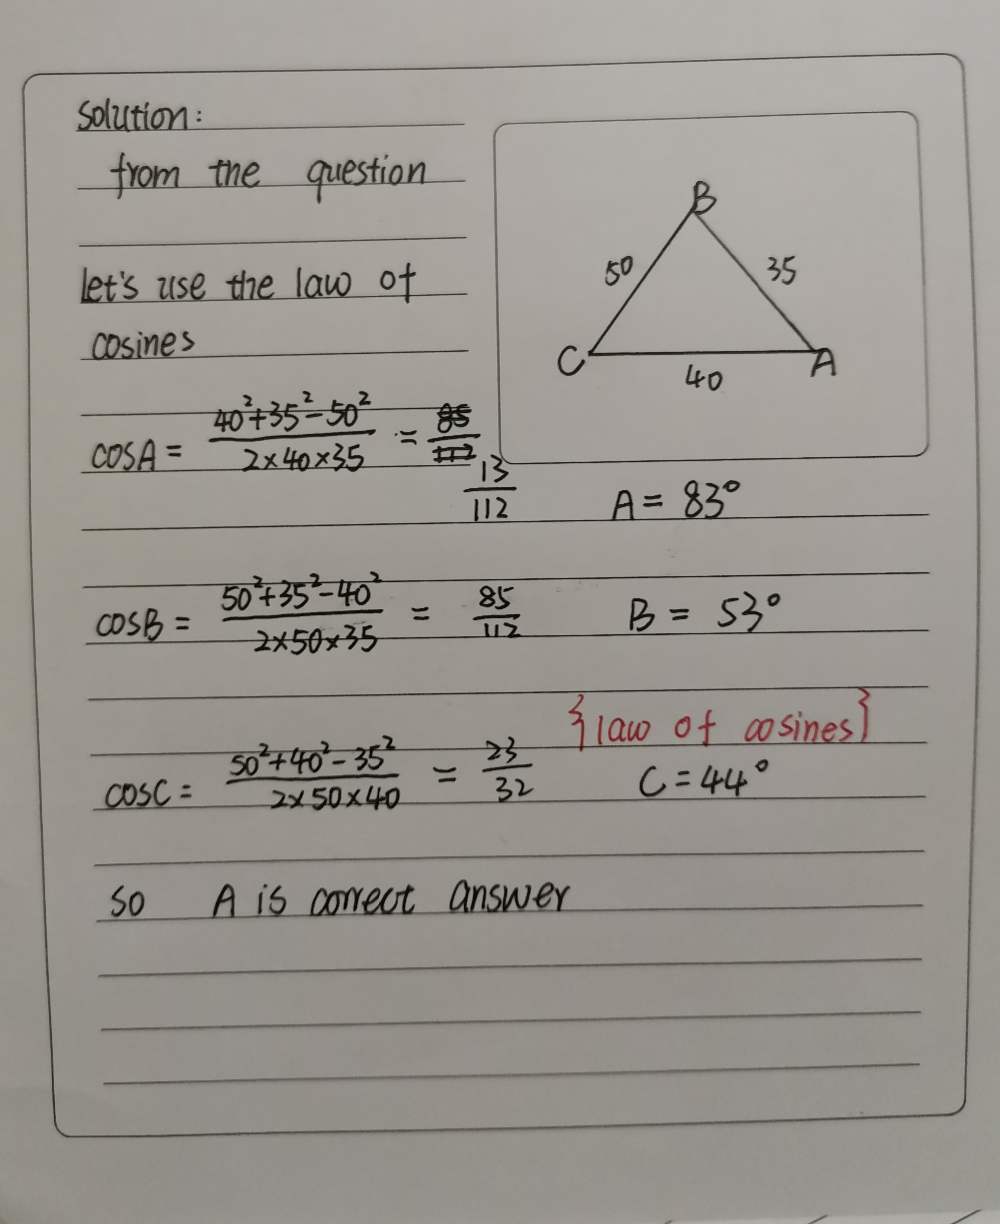 Solution:
from the question
let's use the law of
cosines
B
50
35
C
A
40
cosA = (40²+35²-50²)/(2×40×35) = 85/112
13/112
A = 83°
cosB = (50²+35²-40²)/(2×50×35) = 85/112
B = 53°
{law of cosines}
cosC = (50²+40²-35²)/(2×50×40) = 23/32
C = 44°
so A is correct answer